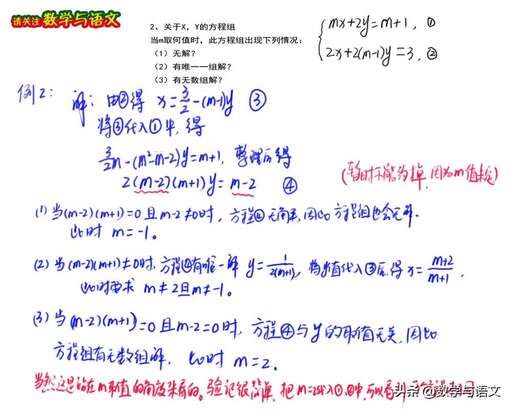 请关注 数学与语文
2、关于X，Y的方程组
当m取何值时，此方程组出现下列情况：
（1）无解？
（2）有唯一一组解？
（3）有无数组解？
mx+2y=m+1, ①
2x+2(m-1)y=3, ②
例2: 解: 由②得 x=3/2-(m-1)y ③
将③代入①中, 得
3/2m-(m²-m-2)y=m+1, 整理后得
2(m-2)(m+1)y=m-2 ④
(暂时不能为掉, 因为m值
(1) 当(m-2)(m+1)=0且m-2≠0时, 方程④无解, 因此方程组也会无解.
此时 m=-1。
(2) 当(m-2)(m+1)≠0时, 方程④有唯一解 y=1/2(m+1), 将y值代入③后, 得 x=m+2/m+1,
此时要求 m≠2且m≠-1。
(3) 当(m-2)(m+1)=0且m-2=0时, 方程④与y的取值无关, 因此
方程组有无数组解. 此时 m=2。
当然这是站在m取值的角度来看的。验证很简单, 把m=2代入①,②中, 可以看
头条 @数学与语文